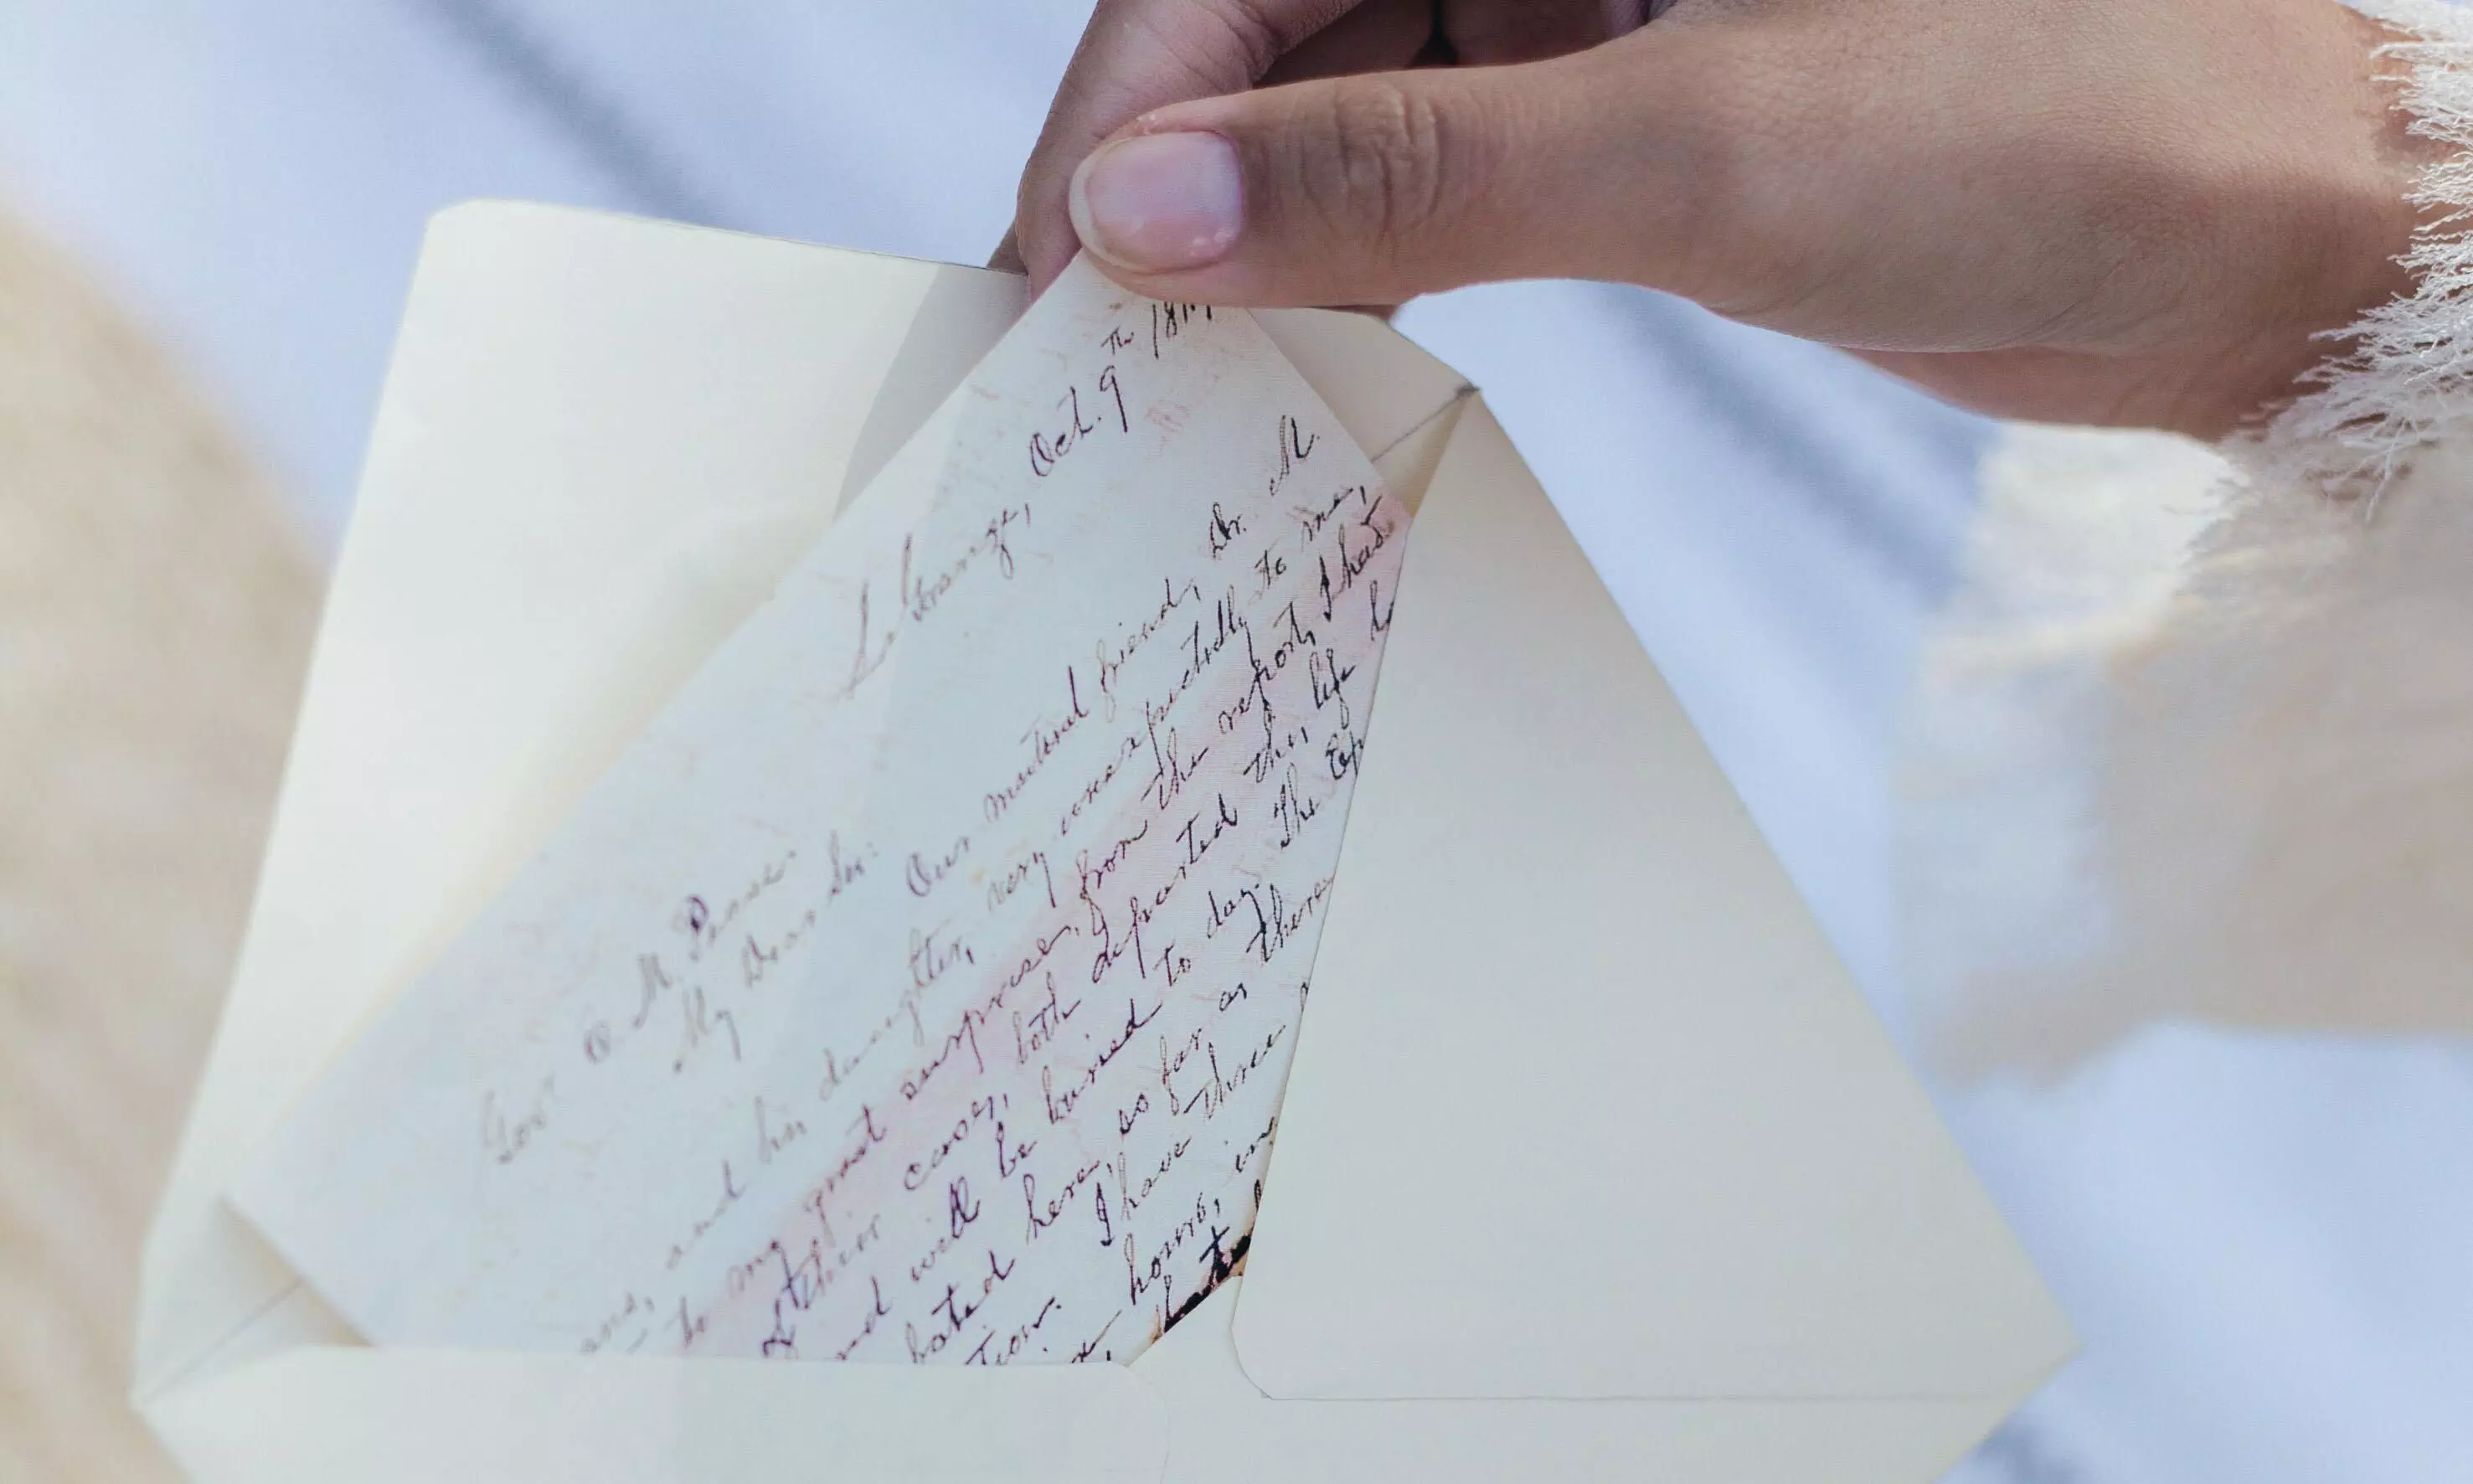 LaGrange, Oct. 9th 18
Gov. 
My Dear Sir:
Our mutual friend, Dr. M.
and his daughter, very unexpectedly to me,
to my great surprise, from the report I had
of their cases, both departed this life
and will be buried to day. The Ep
bated here, so far as there
tion. I have three
hours, in